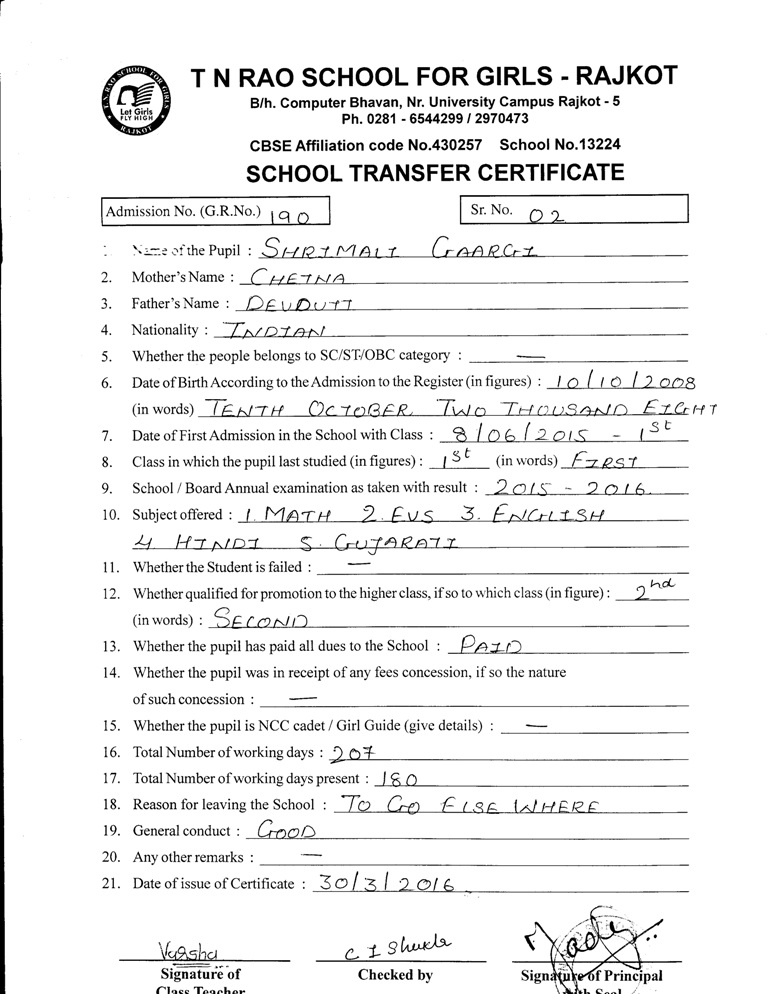 T N RAO SCHOOL FOR GIRLS - RAJKOT
T.N. RAO SCHOOL FOR GIRLS
Let Girls
FLY HIGH
RAJKOT
B/h. Computer Bhavan, Nr. University Campus Rajkot - 5
Ph. 0281 - 6544299 / 2970473
CBSE Affiliation code No.430257 School No.13224
SCHOOL TRANSFER CERTIFICATE
Admission No. (G.R.No.) 190
Sr. No. 02
Name of the Pupil : SHRIMALI GAARGI
2. Mother's Name : CHETNA
3. Father's Name : DEVDUTT
4. Nationality : INDIAN
5. Whether the people belongs to SC/ST/OBC category : —
6. Date of Birth According to the Admission to the Register (in figures) : 10/10/2008
(in words) TENTH OCTOBER TWO THOUSAND EIGHT
7. Date of First Admission in the School with Class : 8/06/2015 - 1st
8. Class in which the pupil last studied (in figures) : 1st (in words) FIRST
9. School / Board Annual examination as taken with result : 2015 - 2016.
10. Subject offered : 1. MATH 2. EVS 3. ENGLISH
4 HINDI 5. GUJARATI
11. Whether the Student is failed : —
12. Whether qualified for promotion to the higher class, if so to which class (in figure) : 2nd
(in words) : SECOND
13. Whether the pupil has paid all dues to the School : PAID
14. Whether the pupil was in receipt of any fees concession, if so the nature
of such concession : —
15. Whether the pupil is NCC cadet / Girl Guide (give details) : —
16. Total Number of working days : 207
17. Total Number of working days present : 180
18. Reason for leaving the School : TO GO ELSE WHERE
19. General conduct : GOOD
20. Any other remarks : —
21. Date of issue of Certificate : 30/3/2016
Varsha
C I Shukla
Signature of
Checked by
Signature of Principal
Class Teacher
with Seal